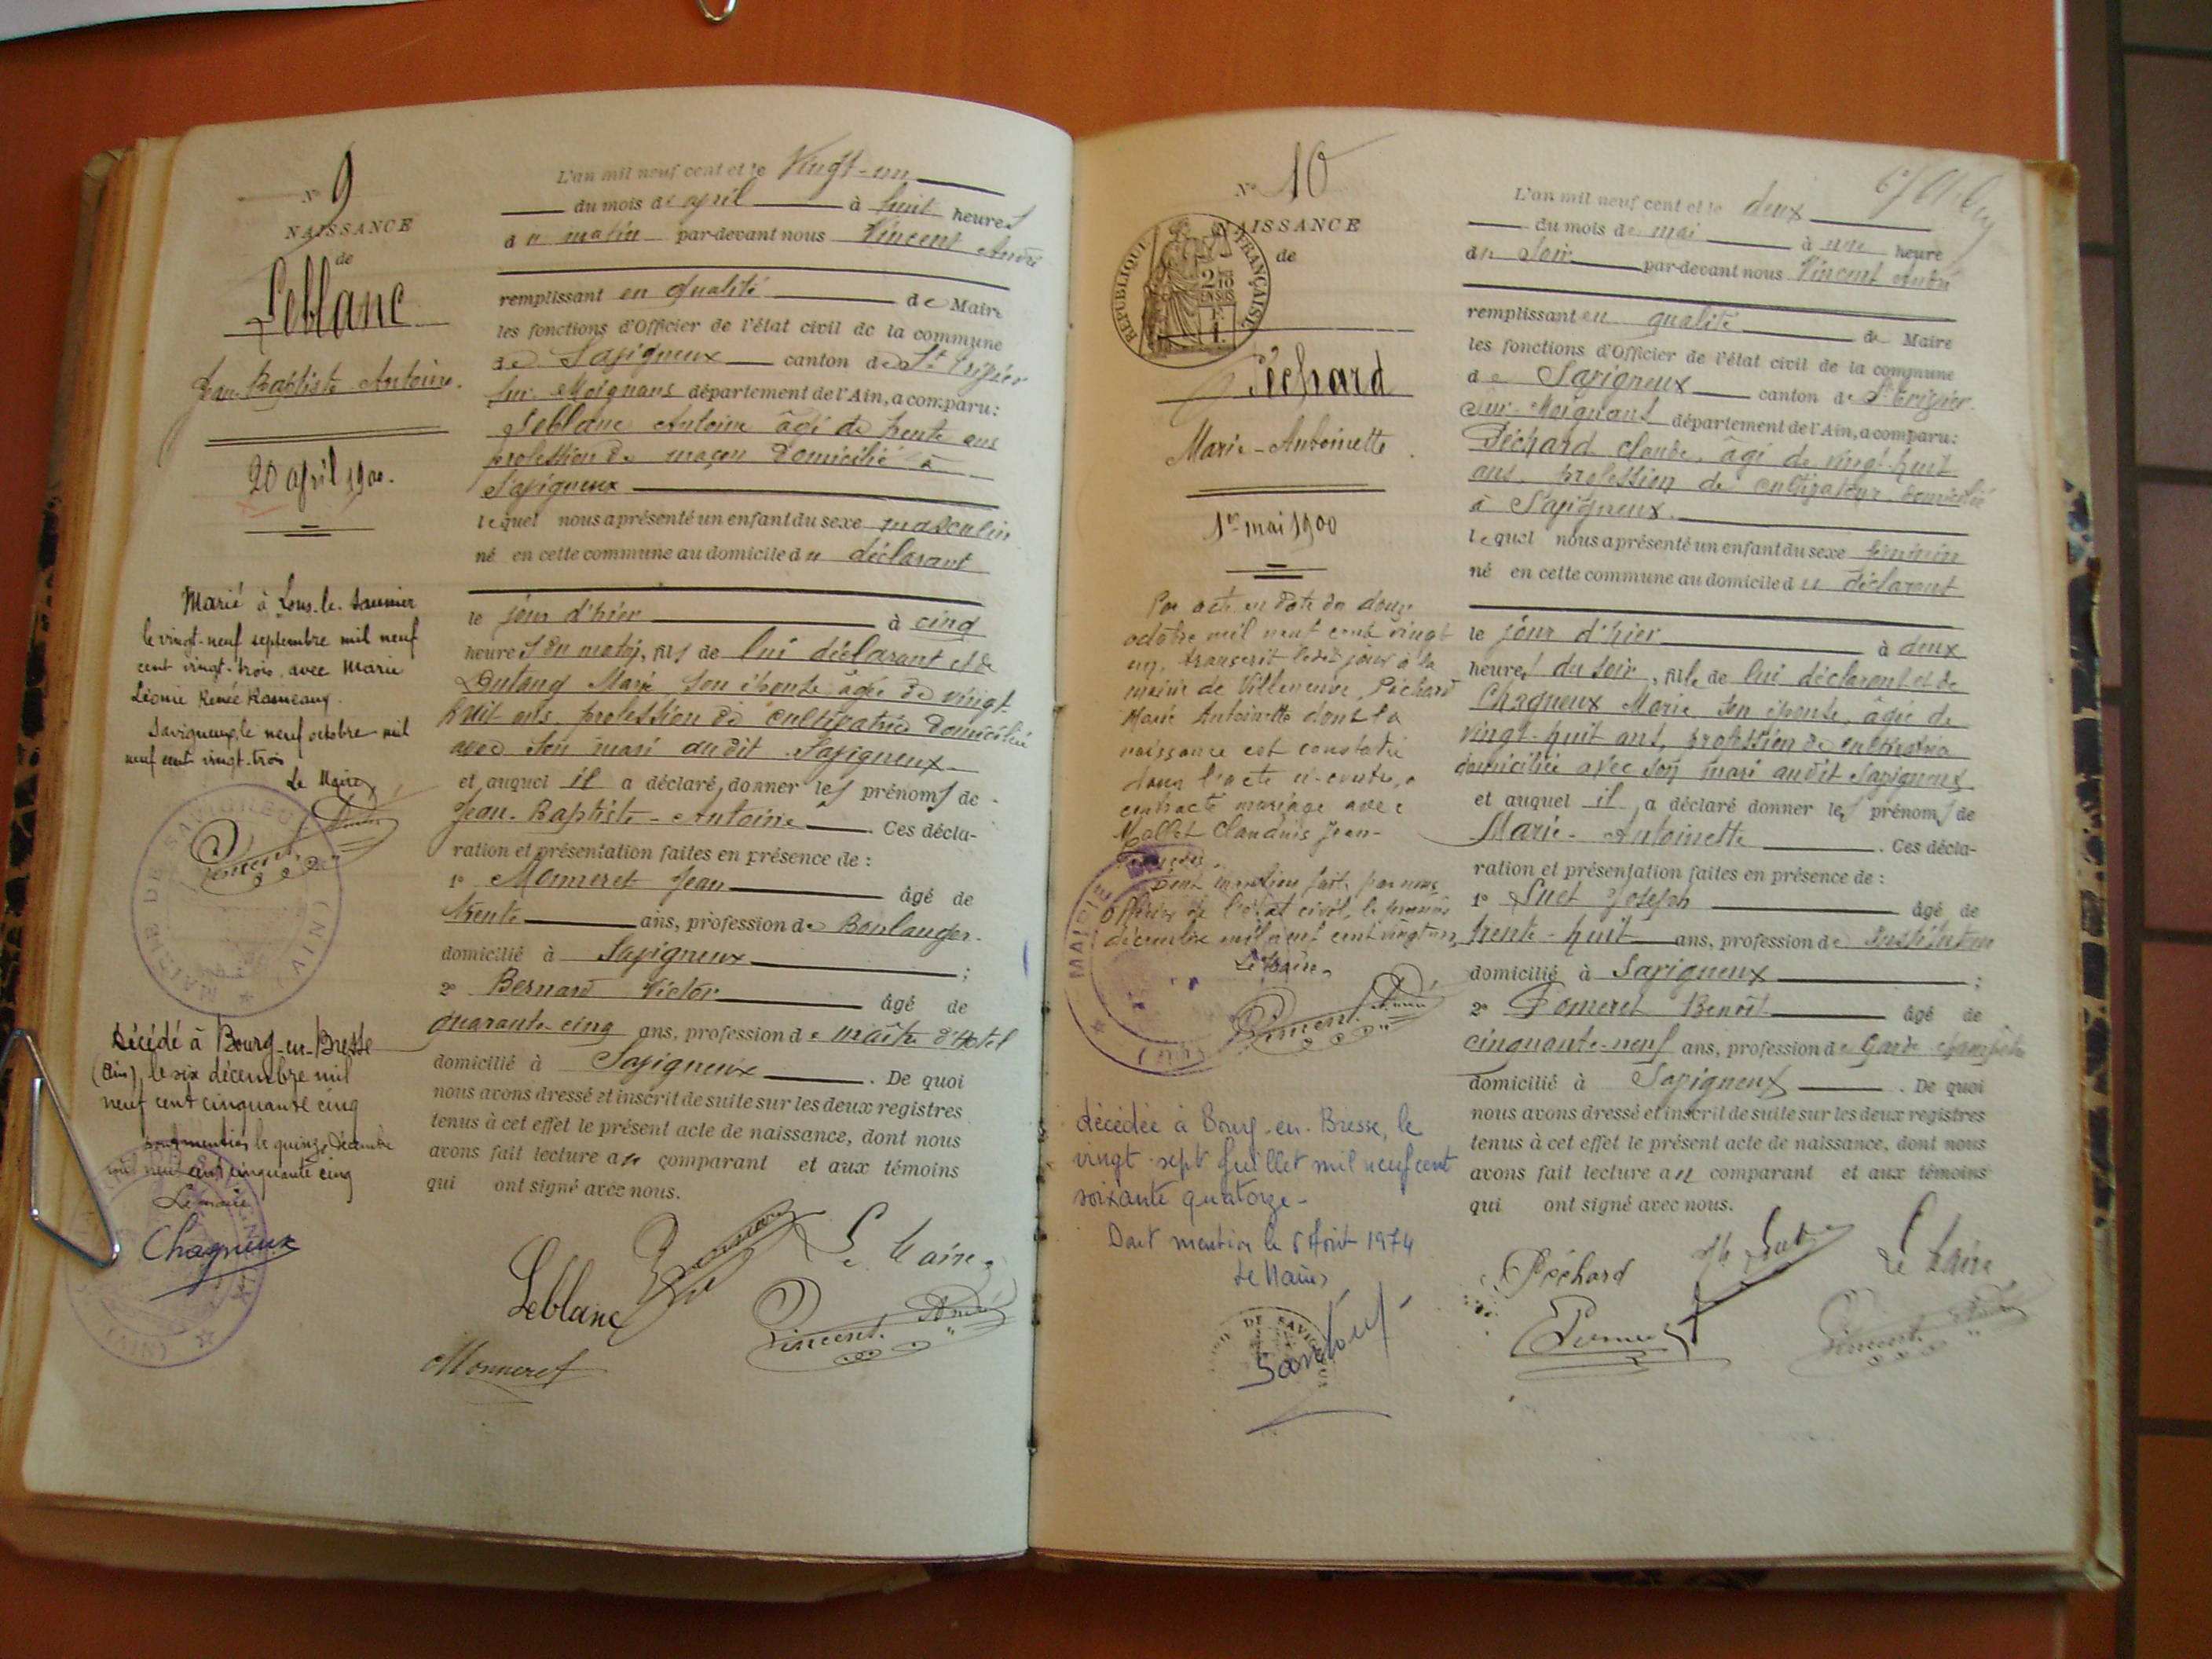 N° 9
NAISSANCE
de
Leblanc
Jean Baptiste Antoine.
20 april 1900.
Marié à Lons-le-Saunier
le vingt-neuf septembre mil neuf
cent vingt-trois, avec Marie
Léonie Renée Rameaux.
Savigneux, le neuf octobre mil
neuf cent vingt-trois
Le Maire,
Vincent André
MAIRIE DE SAVIGNEUX (AIN)
Décédé à Bourg-en-Bresse
(Ain), le six décembre mil
neuf cent cinquante cinq
dont mention le quinze Décembre
mil neuf cent cinquante cinq
Le maire
Chagneux
L'an mil neuf cent et le Vingt-un
du mois de april à huit heures
du matin par-devant nous Vincent André
remplissant en qualité de Maire
les fonctions d'Officier de l'état civil de la commune
de Savigneux canton de St Trivier
sur Moignans département de l'Ain, a comparu:
Leblanc Antoine âgé de trente ans
profession de maçon domicilié à
Savigneux
lequel nous a présenté un enfant du sexe masculin
né en cette commune au domicile du déclarant
le jour d'hier à cinq
heures du matin, fils de lui déclarant et de
Marie son épouse âgée de vingt
huit ans profession de cultivatrice domiciliée
avec son mari audit Savigneux
et auquel il a déclaré donner les prénoms de
Jean-Baptiste-Antoine. Ces décla-
ration et présentation faites en présence de :
1° Monneret Jean âgé de
trente ans, profession de Boulanger
domicilié à Savigneux ;
2° Bernard Victor âgé de
quarante-cinq ans, profession de maître d'Hôtel
domicilié à Savigneux. De quoi
nous avons dressé et inscrit de suite sur les deux registres
tenus à cet effet le présent acte de naissance, dont nous
avons fait lecture au comparant et aux témoins
qui ont signé avec nous.
Leblanc
Le Maire
Vincent André
Monneret
N° 10
NAISSANCE
de
RÉPUBLIQUE FRANÇAISE
Péchard
Marie-Antoinette.
1er mai 1900
Par acte en date du douze
octobre mil neuf cent vingt
un, transcrit ledit jour à la
mairie de Villeneuve, Péchard
Marie Antoinette dont la
naissance est constatée
dans l'acte ci-contre, a
contracté mariage avec
Mallet Claudius Jean-
Dont mention faite par nous
officier de l'état civil, le premier
décembre mil neuf cent vingt un
Le Maire,
Vincent André
MAIRIE (AIN)
décédée à Bourg-en-Bresse, le
vingt-sept Juillet mil neuf cent
soixante quatorze -
Dont mention le 5 Août 1974
Le Maire,
DE SAVIGNEUX
L'an mil neuf cent et le deux
du mois de mai à une heure
du soir par-devant nous Vincent André
remplissant en qualité de Maire
les fonctions d'Officier de l'état civil de la commune
de Savigneux canton de St Trivier
sur-Moignans département de l'Ain, a comparu:
Péchard Claude, âgé de vingt-huit
ans, profession de cultivateur domicilié
à Savigneux.
lequel nous a présenté un enfant du sexe féminin
né en cette commune au domicile du déclarant
le jour d'hier à deux
heures du soir, fille de lui déclarant et de
Chagneux Marie, son épouse, âgée de
vingt-huit ans, profession de cultivatrice
domiciliée avec son mari audit Savigneux
et auquel il a déclaré donner les prénoms de
Marie-Antoinette. Ces décla-
ration et présentation faites en présence de :
1° Suet Joseph âgé de
trente-huit ans, profession de
domicilié à Savigneux ;
2° Pomeret Benoît âgé de
cinquante-neuf ans, profession de Garde champêtre
domicilié à Savigneux. De quoi
nous avons dressé et inscrit de suite sur les deux registres
tenus à cet effet le présent acte de naissance, dont nous
avons fait lecture au comparant et aux témoins
qui ont signé avec nous.
Péchard
Le Maire
Vincent André